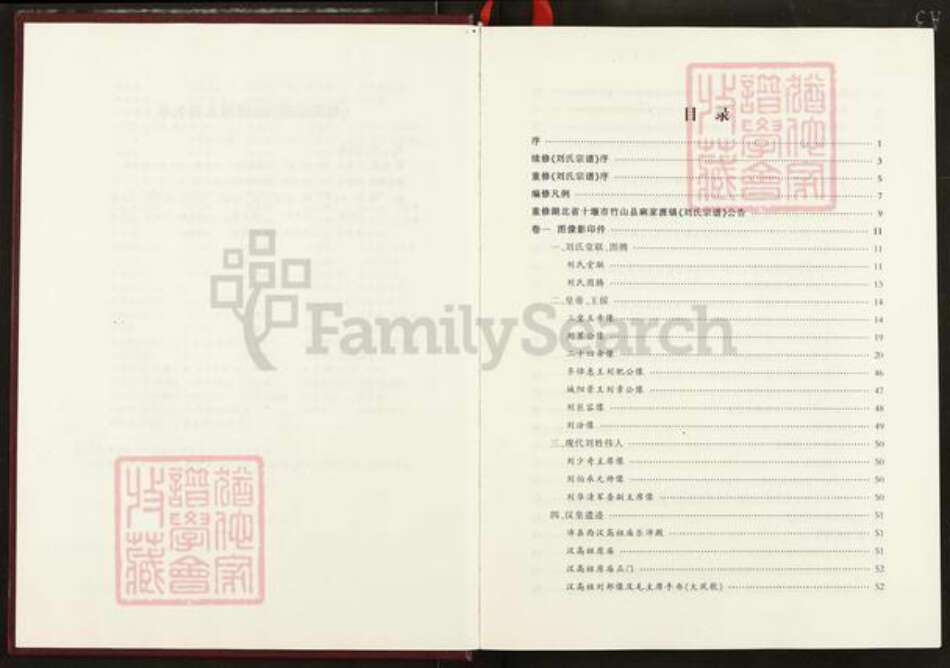 目 录
序 1
续修《刘氏宗谱》序 3
重修《刘氏宗谱》序 5
编修凡例 7
重修湖北省十堰市竹山县麻家渡镇《刘氏宗谱》公告 9
卷一 图像影印件 11
一、刘氏堂联、图腾 11
刘氏堂联 11
刘氏图腾 13
二、皇帝、王侯 14
三皇五帝像 14
刘累公像 19
二十四帝像 20
齐悼惠王刘肥公像 46
城阳景王刘章公像 47
刘巨容像 48
刘汾像 49
三、现代刘姓伟人 50
刘少奇主席像 50
刘伯承元帅像 50
刘华清军委副主席像 50
四、汉皇遗迹 51
沛县西汉高祖庙歌沛殿 51
汉高祖原庙 51
汉高祖原庙正门 52
汉高祖刘邦像及毛主席手书《大风歌》 52
FamilySearch